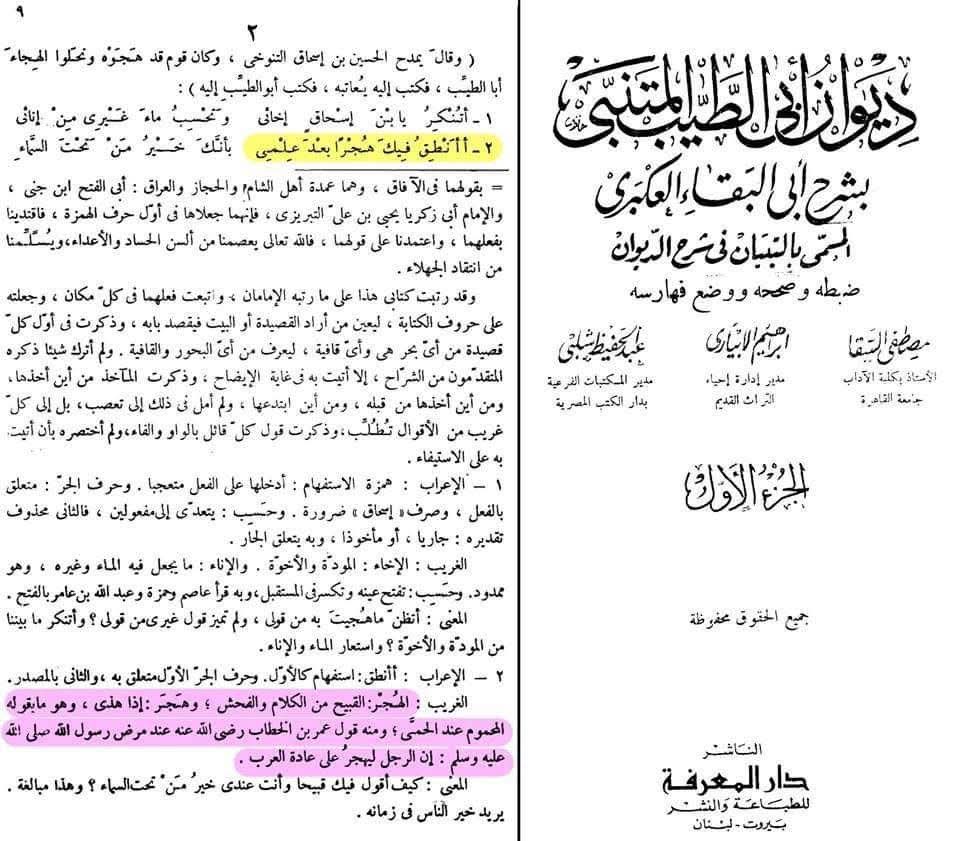 ديوان أبي الطيب المتنبي
بشرح أبي البقاء العكبري
المسمى بالتبيان في شرح الديوان
ضبطه وصححه ووضع فهارسه
مصطفى السقا
الأستاذ بكلية الآداب
جامعة القاهرة
ابراهيم الابياري
مدير إدارة إحياء
التراث القديم
عبد الحفيظ شلبي
مدير المكتبات الفرعية
بدار الكتب المصرية
الجزء الأول
جميع الحقوق محفوظة
الناشر
دار المعرفة
للطباعة والنشر
بيروت - لبنان
٩
٢
( وقال يمدح الحسين بن إسحاق التنوخى ، وكان قوم قد هَجَوْه ونحلوا الهجاء
أبا الطيِّب ، فكتب إليه يُعاتبه ، فكتب أبوالطيِّب إليه ) :
١ - أتُنْكِرُ يا بْنَ إسْحاقٍ إخائى وتَحْسِبُ ماءَ غَيْرِى مِنْ إنائى
٢ - أأنْطِقُ فيكَ هُجْرًا بعْدَ عِلْمِى بأنَّكَ خَيْرُ مَنْ تَحْتَ السَّماءِ
= بقولهما فى الآفاق ، وهما عمدة أهل الشام والحجاز والعراق : أبى الفتح ابن جنى ،
والإمام أبى زكريا يحيى بن علىّ التبريزى ، فإنهما جعلاها فى أوّل حرف الهمزة ، فاقتدينا
بفعلهما ، واعتمدنا على قولهما ، فالله تعالى يعصمنا من ألسن الحساد والأعداء، ويُسلِّمنا
من انتقاد الجهلاء .
وقد رتبت كتابى هذا على ما رتبه الإمامان ، واتبعت فعلهما فى كلّ مكان ، وجعلته
على حروف الكتابة ، ليعين من أراد القصيدة أو البيت فيقصد بابه ، وذكرت فى أوّل كلّ
قصيدة من أىّ بحر هى وأىّ قافية ، ليعرف من أىّ البحور والقافية . ولم أترك شيئا ذكره
المتقدّمون من الشرّاح ، إلا أتيت به فى غاية الإيضاح ، وذكرت المآخذ من أين أخذها،
ومن أين أخذها من قبله ، ومن أين ابتدعها ، ولم أمل فى ذلك إلى تعصب، بل إلى كلّ
غريب من الأقوال تُطُلِّب، وذكرت قول كلّ قائل بالواو والفاء، ولم أختصره بأن أتيت
به على الاستيفاء .
١ - الإعراب : همزة الاستفهام : أدخلها على الفعل متعجبا . وحرف الجرّ : متعلق
بالفعل ، وصرف « إسحاق » ضرورة . وحَسِب : يتعدّى إلى مفعولين ، فالثانى محذوف
تقديره : جاريا ، أو مأخوذا ، وبه يتعلق الجار .
الغريب : الإخاء : المودّة والأخوّة . والإناء : ما يجعل فيه الماء وغيره ، وهو
ممدود. وحَسِب : تفتح عينه وتكسر فى المستقبل، وبه قرأ عاصم وحمزة وعبد الله بن عامر بالفتح .
المعنى : أتظنّ ماهُجيتَ به من قولى ، ولم تميز قول غيرى من قولى ؟ وأتنكر ما بيننا
من المودّة والأخوّة ؟ واستعار الماء والإناء.
٢ - الإعراب : أأنطق : استفهام كالأوّل. وحرف الجرّ الأوّل متعلق به ، والثانى بالمصدر.
الغريب : الهُجْر: القبيح من الكلام والفحش ؛ وهَجَر : إذا هذى ، وهو مايقوله
المحموم عند الحمَّى ؛ ومنه قول عمر بن الخطاب رضى الله عنه عند مرض رسول الله صلى الله
عليه وسلم : إن الرجل ليهجرُ على عادة العرب .
المعنى : كيف أقول فيك قبيحا وأنت عندى خيرُ مَنْ تحت السماء ؟ وهذا مبالغة .
يريد خير الناس فى زمانه .